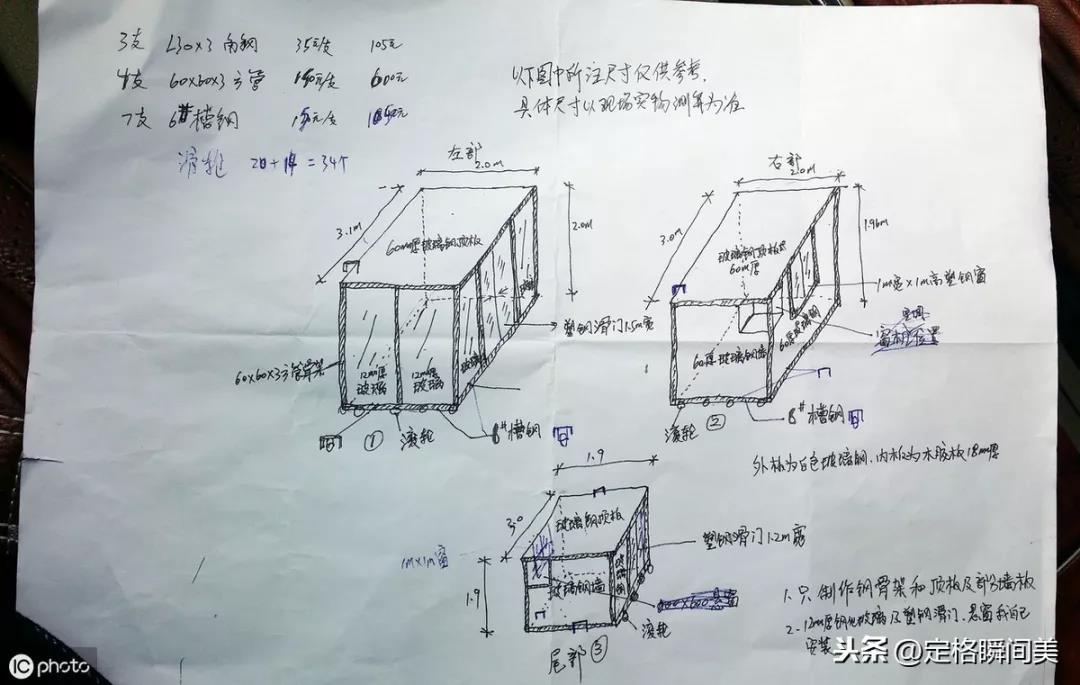 3支 L30×3角钢 35元/支 105元
4支 60×60×3方管 150元/支 600元
7支 6#槽钢
滑轮 20+14=34个
以下图中所注尺寸仅供参考,
具体尺寸以现场实物测算为准
左部
2.0m
3.1m
60mm厚玻璃钢顶板
2.0m
塑钢滑门1.5m宽
玻璃
60×60×3方管骨架
12mm厚
玻璃
12mm厚
玻璃
玻璃
①
滚轮
8#槽钢
右部
2.0m
3.0m
玻璃钢顶板
60m厚
1.96m
1m宽×1m高塑钢窗
60厚玻璃钢墙
60厚玻璃钢
滚轮
②
8#槽钢
外板为白色玻璃钢.内板为木胶板18mm厚
1.9
3.0
玻璃钢顶板
1m×1m窗
塑钢滑门1.2m宽
1.9
玻璃钢墙
玻璃钢
滚轮
尾部 ③
1.只制作钢骨架和顶板及部分墙板
2-12mm厚钢化玻璃及塑钢滑门.悬窗我自己
安装
IC photo
头条 @定格瞬间美